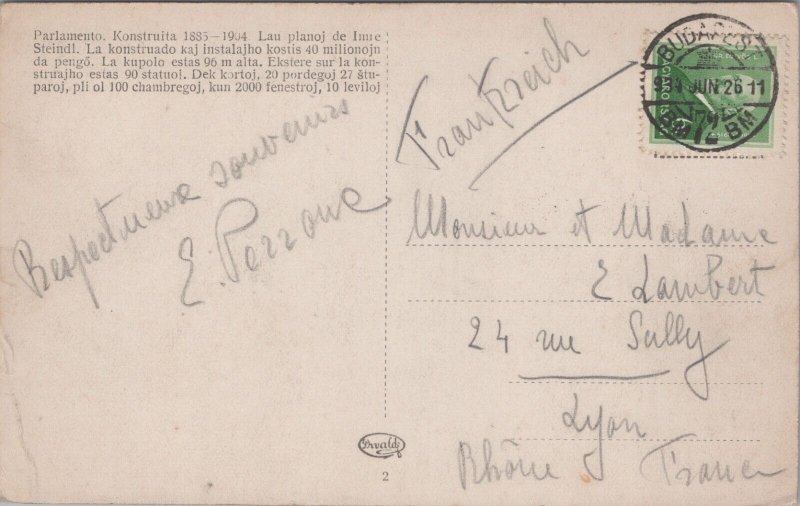 Parlamento. Konstruita 1885-1904. Lau planoj de Imre
Steindl. La konstruado kaj instalajho kostis 40 milionojn
da pengő. La kupolo estas 96 m alta. Ekstere sur la kon-
struajho estas 90 statuoj. Dek kortoj, 20 pordegoj 27 ŝtu-
paroj, pli ol 100 chambregoj, kun 2000 fenestroj, 10 leviloj
Frankreich
BUDAPEST
JUN 26 11
Respectueux souvenirs
E. Perrone
Monsieur et Madame
E Lambert
24 rue Sully
Lyon
Rhône France
2